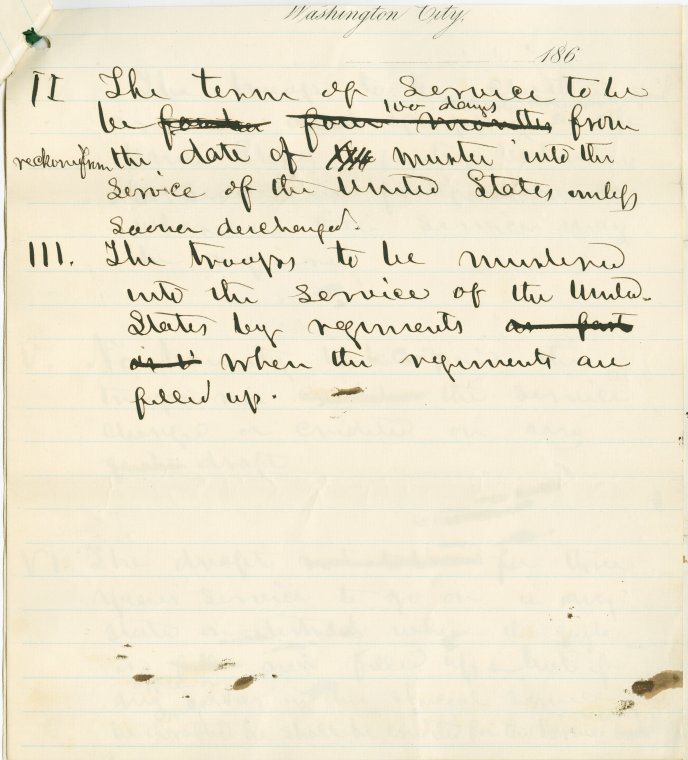 Washington City,
186
II The term of Service to be
100 days
be four months from
reckoned from the date of muster into the
Service of the United States unless
sooner discharged.
III. The troops to be mustered
into the service of the United
States by regiments as fast
as when the regiments are
filled up.